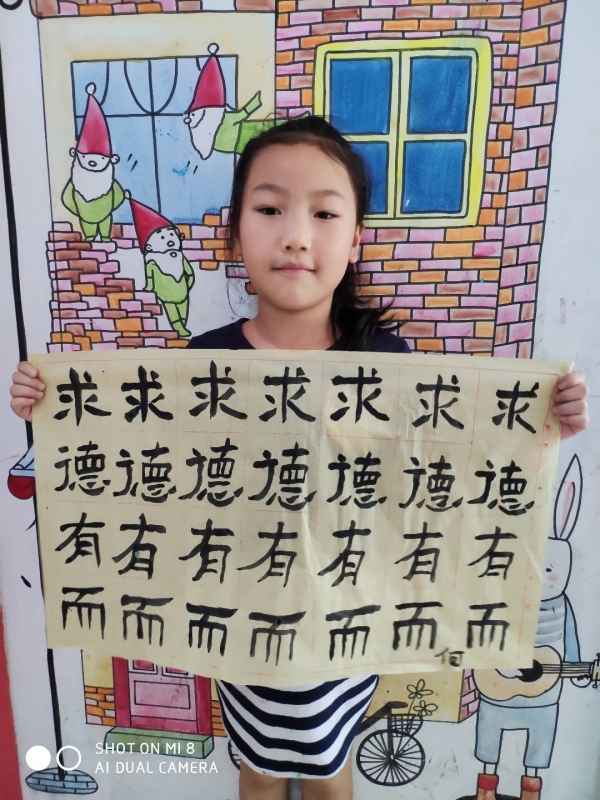 求求求求求求求
德德德德德德德
有有有有有有有
而而而而而而而
何
SHOT ON MI 8
AI DUAL CAMERA